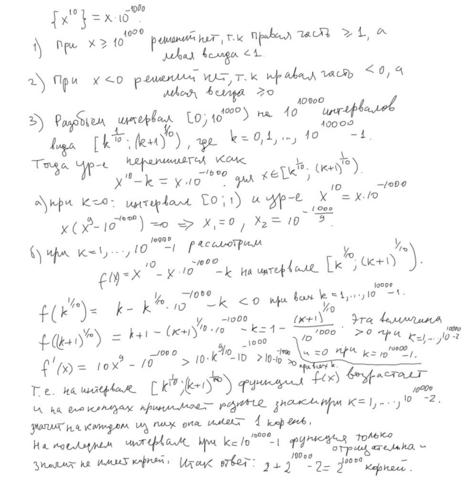 {x^10} = x·10^-1000.
1) При x ≥ 10^1000 решений нет, т.к правая часть ≥ 1, а
левая всегда < 1
2) При x < 0 решений нет, т.к правая часть < 0, а
левая всегда ≥ 0
3) Разобьем интервал [0; 10^1000) на 10^10000 интервалов
вида [k^1/10; (k+1)^1/10), где k = 0,1,..., 10^10000 - 1.
Тогда ур-е перепишется как
x^10 - k = x·10^-1000 для x∈[k^1/10; (k+1)^1/10).
а) при k=0: интервал [0; 1) и ур-е x^10 = x·10^-1000
x(x^9 - 10^-1000) = 0 => x₁ = 0, x₂ = 10^-1000/9.
б) при k = 1,..., 10^10000-1 рассмотрим
f(x) = x^10 - x·10^-1000 - k на интервале [k^1/10; (k+1)^1/10).
f(k^1/10) = k - k^1/10·10^-1000 - k < 0 при всех k = 1,..., 10^10000-1.
f((k+1)^1/10) = k+1 - (k+1)^1/10·10^-1000 - k = 1 - (k+1)^1/10/10^1000. Эта величина
> 0 при k=1,..,10^10000-2
и = 0 при k = 10^10000-1.
f'(x) = 10x^9 - 10^-1000 > 10·k^9/10 - 10^-1000 > 10 - 10^-1000 > 0 при всех k.
Т.е. на интервале [k^1/10; (k+1)^1/10) функция f(x) возрастает
и на его концах принимает разные знаки при k = 1,..., 10^10000-2.
значит на каждом из них она имеет 1 корень.
На последнем интервале при k = 10^10000-1 функция только
отрицательна и
значит не имеет корней. Итак ответ: 2 + 10^10000 - 2 = 10^10000 корней.